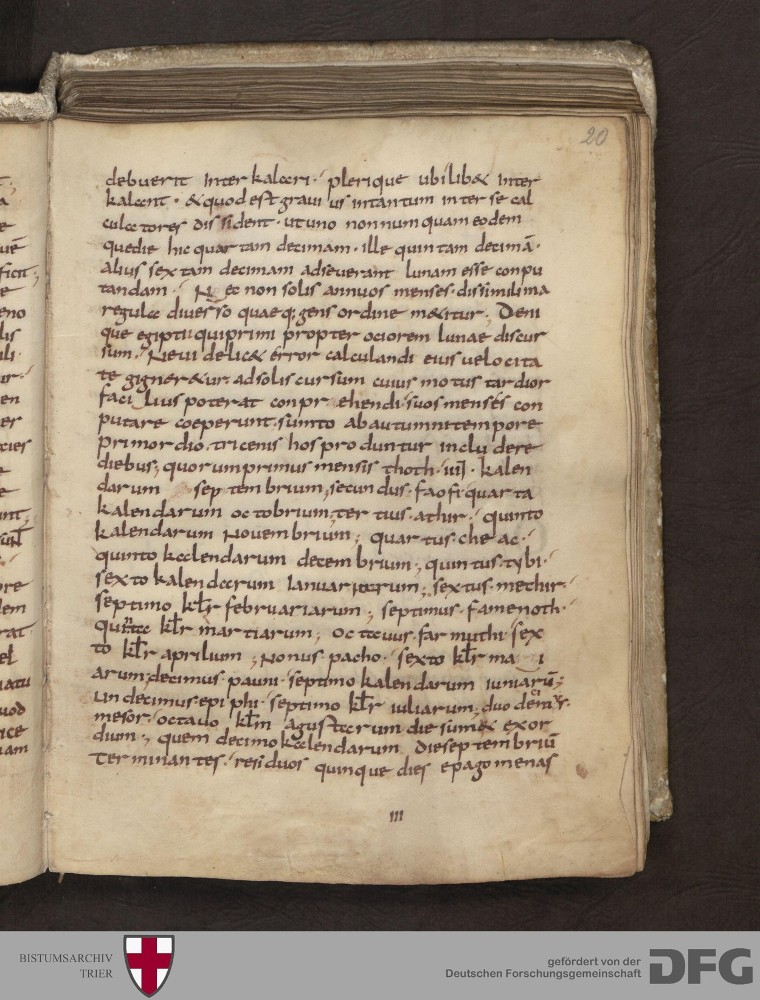 20
debuerit inter kalari · plerique ubi lib& inter
kalent · & quod est graui us intantum inter se cal
culatores dissident · ut uno nonnumquam eodem
quedie hic quartam decimam · ille quintam decimā ·
alius sextam decimam adseuerant lunam esse conpu
tandam · Nec non solis annuos menses · dissimilima
regula diuerso quaeq; gens ordine m&itur · Deni
que egiptii qui primi propter ociorem lunae discur
sum · Neui delic& error calculandi eius uelocita
te gigner&ur · ad solis cursum cuius motus tardior
facilius poterat conprehendi · suos menses con
putare coeperunt · sumto ab autumni tempore
primordio · tricenis hos produntur includere
diebus; quorum primus mensis thoth · iiij · kalen
darum septembrium; secundus · faofi quarta
kalendarum octobrium; tertius · athir · quinto
kalendarum Nouembrium; quartus · cheac ·
quinto kalendarum decembrium; quintus · tybi ·
sexto kalendarum Ianuariarum; sextus · mechir ·
septimo kłr februariarum; septimus · famenoth ·
kłr martiarum; Octauus · farmuthi · sex
to kłr aprilium; Nonus · pacho · sexto kłr ma i
arum; decimus · pauni · septimo kalendarum iuniarū;
undecimus · epiphi · septimo kłr iuliarum;
mesor · octauo kłm agustarum die sum& exor
dium; quem decimo kalendarum die septembriū
Terminantes · residuos quinque dies epagomenas
III
BISTUMSARCHIV
TRIER
gefördert von der
Deutschen Forschungsgemeinschaft
DFG